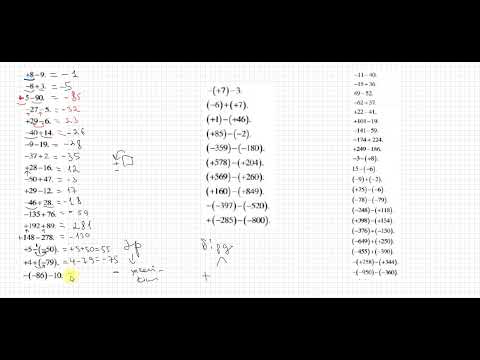 +8−9. = −1
−8+3. = −5
+5−90. = −85
−27−5. = −32
+29−6. = 23
−40+14. = −26
−9−19. = −28
−37+2. = −35
+28−16. = 12
−50+47. = −3
+29−12. = 17
−46+28. = −18
−135+76. = −59
+192+89. = 281
+148−278. = −130
+5−(−50). = +5+50=55
+4+(−79). = 4−79=−75
−(−86)−10. =
−(+7)−3.
(−6)+(+7).
(+1)−(+46).
(+85)−(−2).
(−359)−(−180).
(+578)−(+204).
(+569)−(+260).
(+160)−(+849).
−(−397)−(−520).
+(−285)−(−800).
−11−40.
69−52.
−62+37.
+101−19.
−141−59.
−174+224.
+249−186.
−3−(+8).
15−(−6).
(−9)+(−2).
(+75)−(−6)
(−78)−(−29).
(−248)−(+118)
(+398)−(+134).
(−376)−(−310).
(−250)+(−640).
(−455)+(−390).
−(+258)−(+344).
−(−950)−(−360).